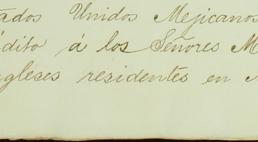 tados Unidos Mejicanos
édito á los Señores M
ngleses residentes en